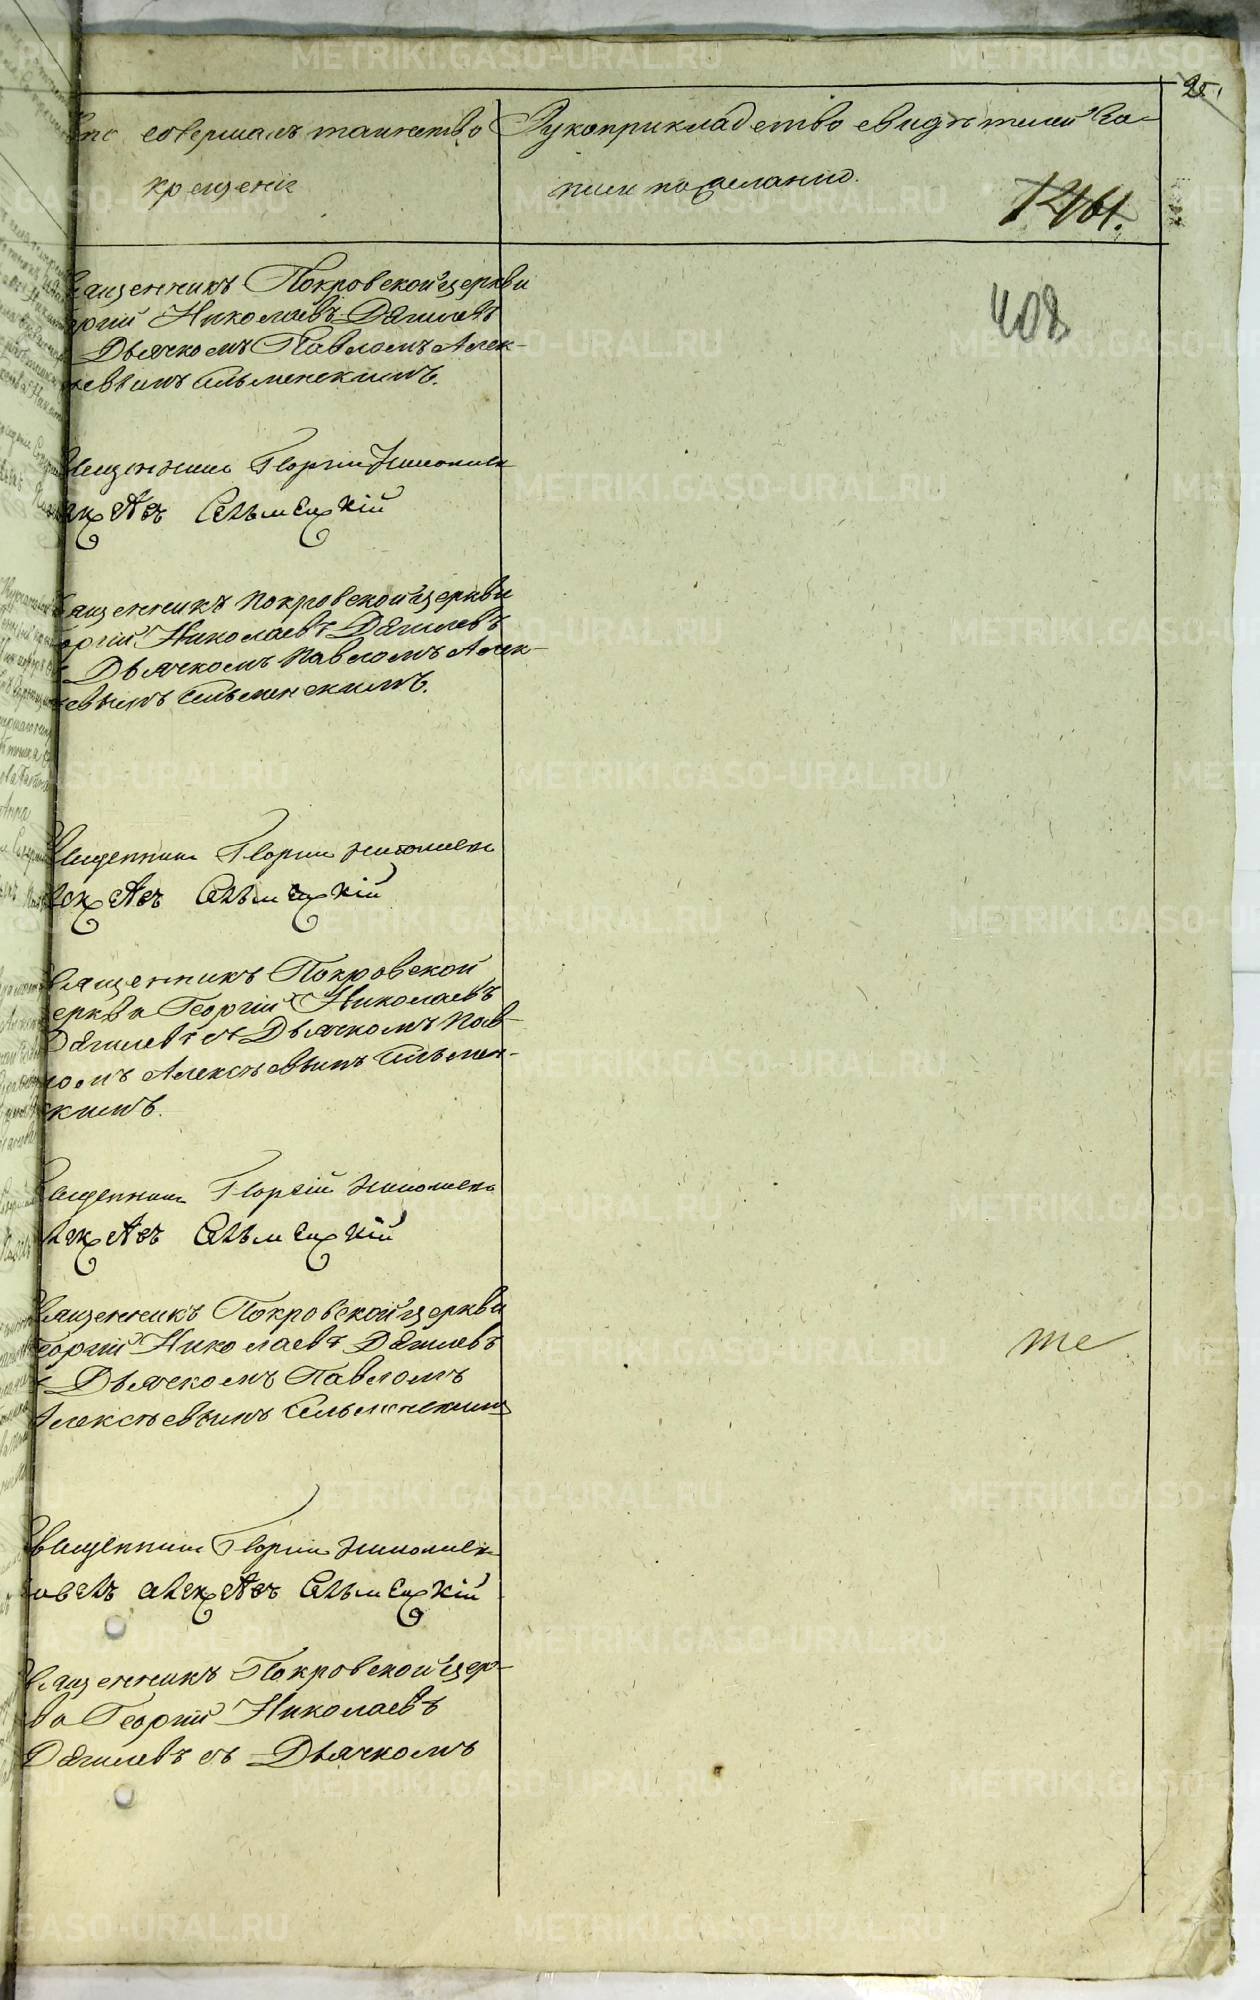 25.
совершалъ таинство
крещенія
Рукоприкладство свидѣтелей за-
писи по желанію.
1216.
408
Священникъ Покровской церкви
Георгій Николаевъ Дягилевъ
съ Дьячкомъ Павломъ Алек-
сѣевымъ Сельменскимъ.
Священникъ Георгій Николаевъ
Алексѣевъ Сельменскій
Священникъ Покровской церкви
Георгій Николаевъ Дягилевъ
съ Дьячкомъ Павломъ Алек-
сѣевымъ Сельменскимъ.
Священникъ Георгій Николаевъ
Алексѣевъ Сельменскій
Священникъ Покровской
церкви Георгій Николаевъ
Дягилевъ съ Дьячкомъ Пав-
ломъ Алексѣевымъ Сельмен-
скимъ.
Священникъ Георгій Николаевъ
Алексѣевъ Сельменскій
Священникъ Покровской церкви
Георгій Николаевъ Дягилевъ
съ Дьячкомъ Павломъ
Алексѣевымъ Сельменскимъ
те
Священникъ Георгій Николаевъ
Павелъ Алексѣевъ Сельменскій
Священникъ Покровской цер-
кви Георгій Николаевъ
Дягилевъ съ Дьячкомъ
METRIKI.GASO-URAL.RU